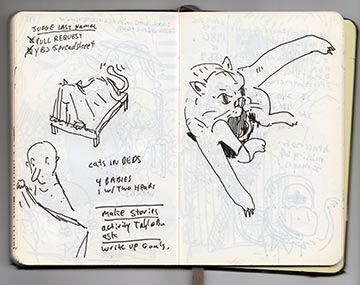 JUDGE LAST NAMES
PULL REQUEST
YBJ Spreadsheet
cats IN BEDS
4 BABIES
1 w/ Two HEADS
Make stories
activity Table On
ask
Write up Goals.